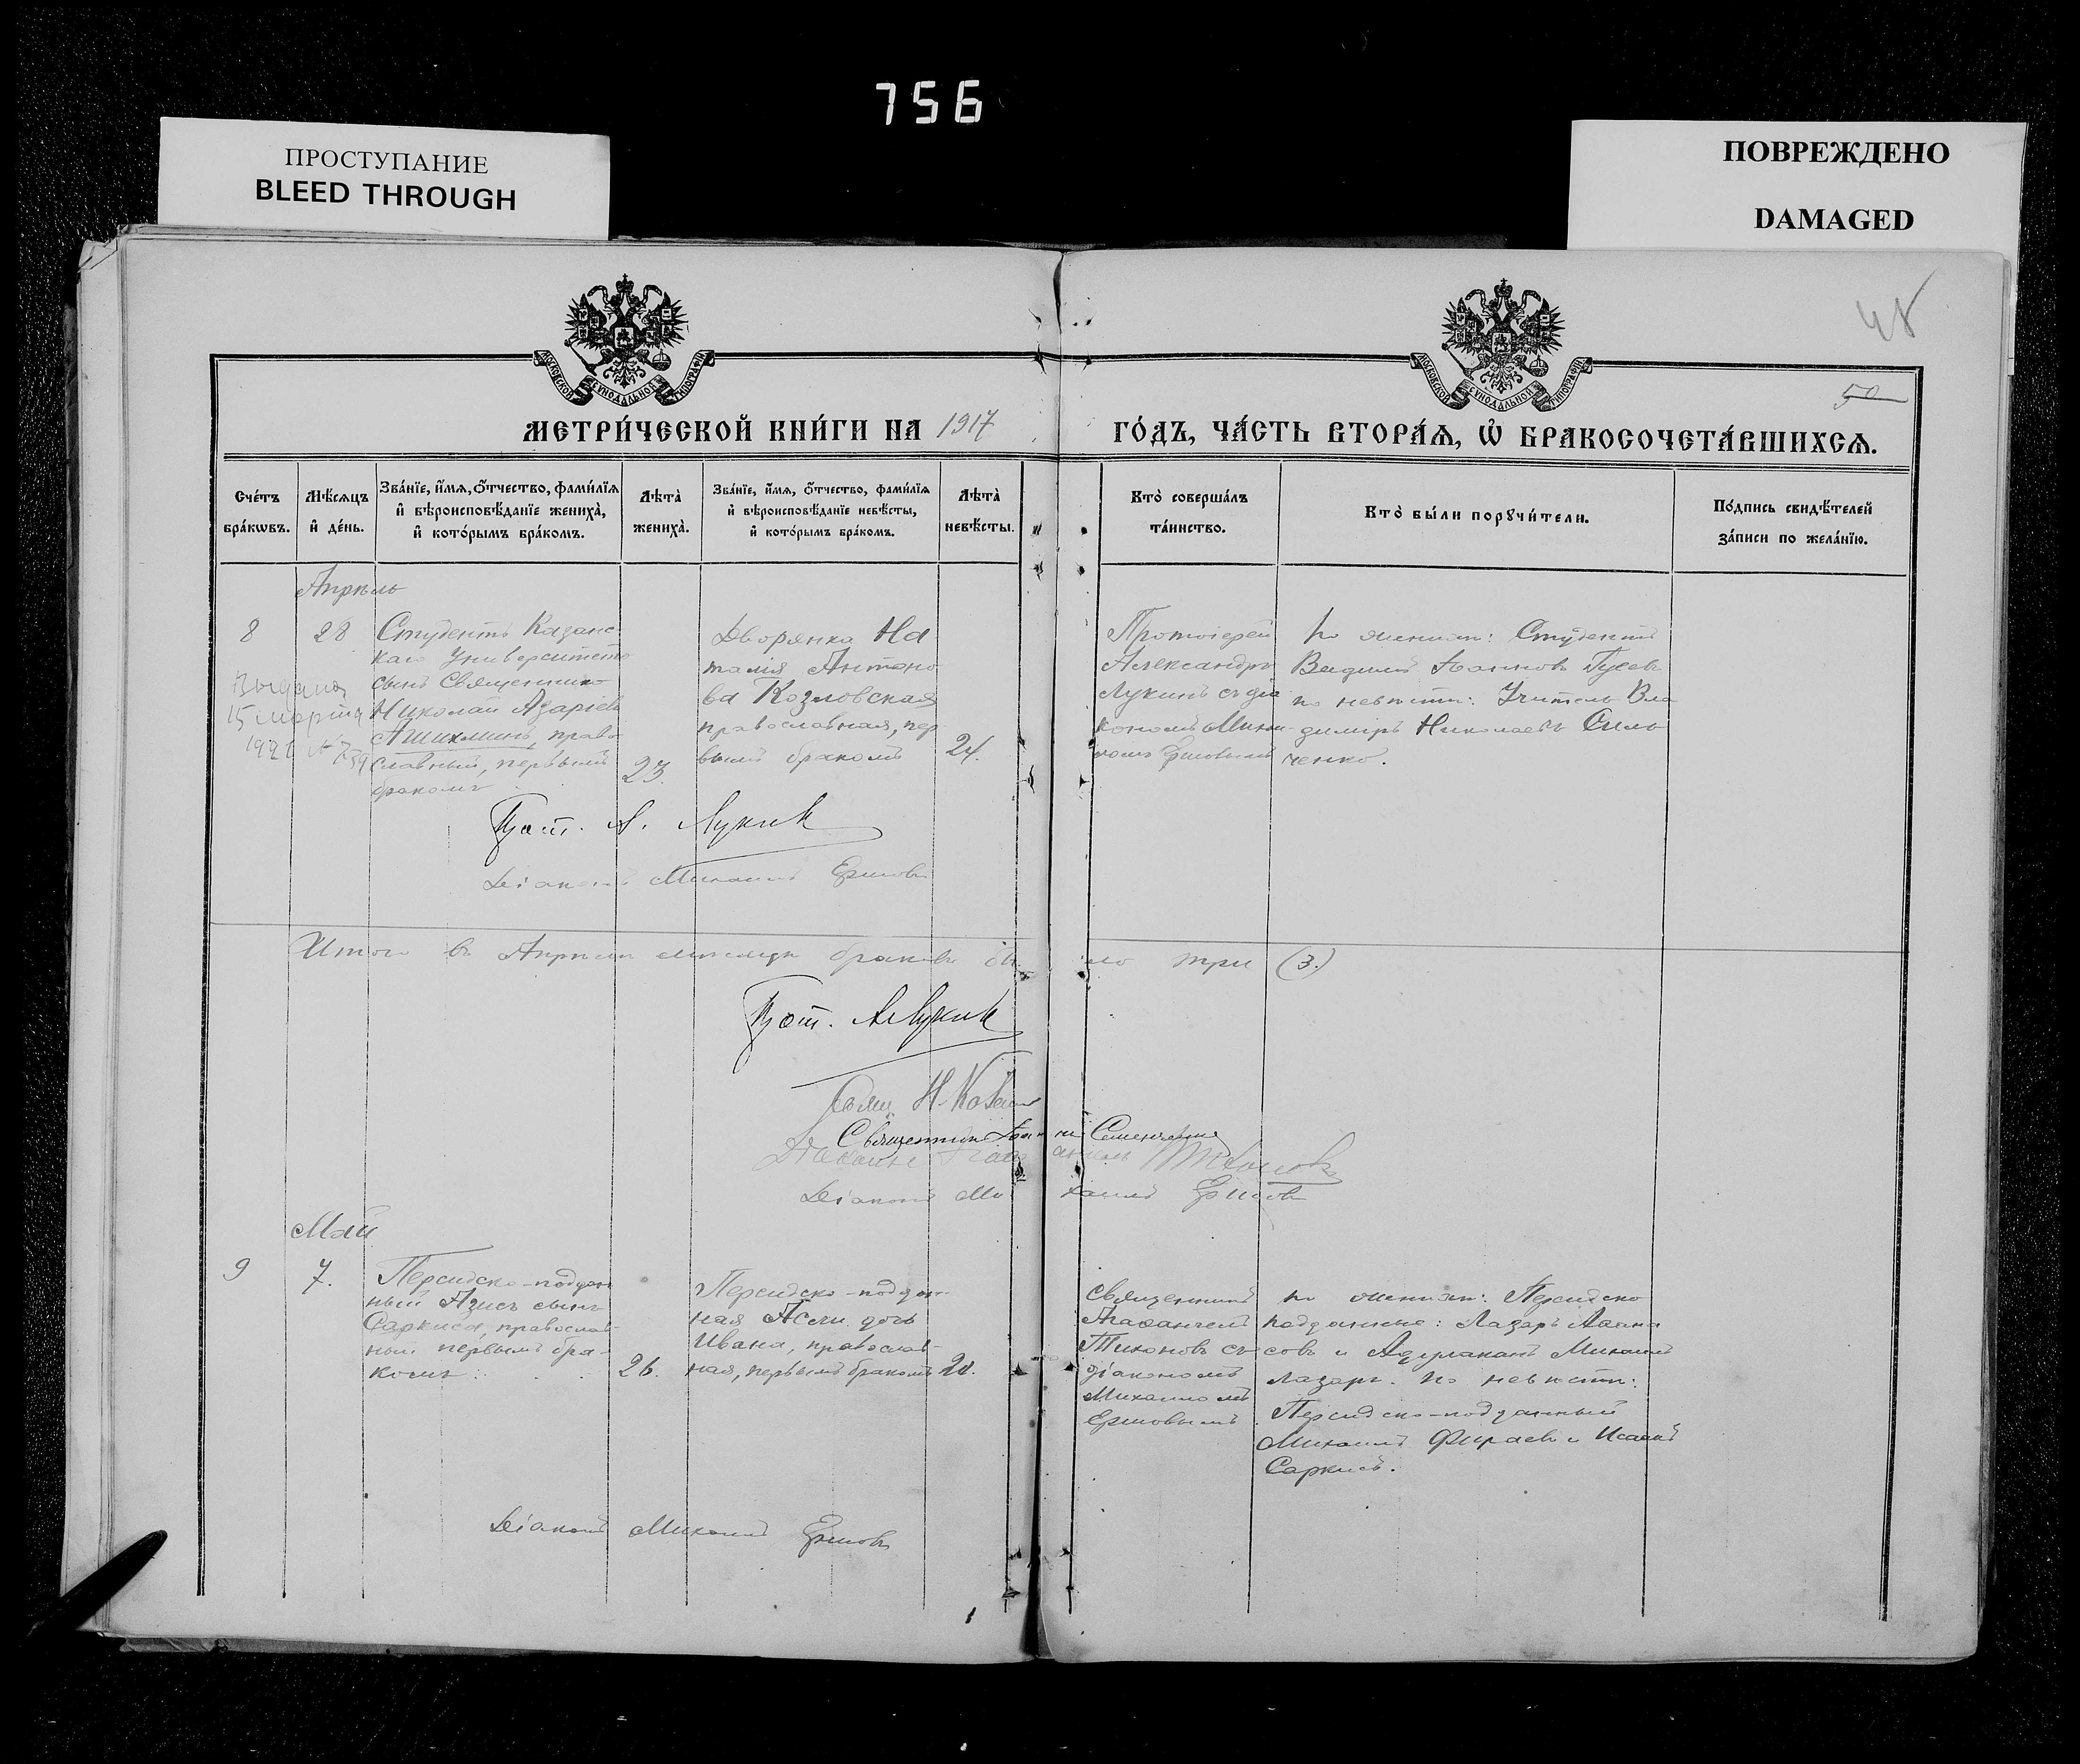 756
ПРОСТУПАНИЕ
BLEED THROUGH
ПОВРЕЖДЕНО
DAMAGED
48
50
МОСКОВСКОЙ СѴНОДАЛЬНОЙ ТИПОГРАФІИ
МОСКОВСКОЙ СѴНОДАЛЬНОЙ ТИПОГРАФІИ
МЕТРИ́ЧЕСКОЙ КНИ́ГИ НА 1917 ГО́ДЪ, ЧА́СТЬ ВТОРА́Ѧ, Ѡ҆ БРАКОСОЧЕТА́ВШИХСѦ.
Сче́тъ бра́кѡвъ.
Мѣ́сѧцъ и҆ де́нь.
Зва́нїе, и҆́мѧ, ѻ҆́тчество, фами́лїѧ и҆ вѣроисповѣ́данїе жениха̀, и҆ кото́рымъ бра́комъ.
Лѣта̀ жениха̀.
Зва́нїе, и҆́мѧ, ѻ҆́тчество, фами́лїѧ и҆ вѣроисповѣ́данїе невѣ́сты, и҆ кото́рымъ бра́комъ.
Лѣта̀ невѣ́сты.
Кто̀ соверша́лъ та́инство.
Кто̀ бы́ли порꙋчи́тели.
По́дпись свидѣ́телей за́писи по жела́нїю.
Апрѣль
8
28
Выдана
15 марта
1921 № 739
Студентъ Казанс-
каго Университета
сынъ Священника
Николай Азаріевъ
Ашихминъ, право-
славный, первымъ
бракомъ
23.
Дворянка На
талія Антоно
ва Козловская
православная, пер
вымъ бракомъ
24.
Протоіерей
Александръ
Лукинъ съ діа
кономъ Михаи-
ломъ Ершовымъ
По женихѣ: Студентъ
Вадимъ Іоанновъ Гусевъ
по невѣстѣ: Учитель Вла
димиръ Николаевъ
ченко.
Прот. А. Лукинъ
Діаконъ Михаилъ Ершовъ
Итого въ Апрѣлѣ мѣсяцѣ браковъ было три (3.)
Прот. А Лукинъ
Свящ. Н.
Священникъ Іоаннъ
Діаконъ Михаилъ Ершовъ
Май
9
7.
Персидско-поддан
ный Азисъ сынъ
Саркиса, православ-
ный первымъ бра-
комъ
26.
Персидско-поддан-
ная Асли дочь
Ивана, православ-
ная, первымъ бракомъ
20.
Священникъ
Агаѳангелъ
Тихоновъ съ
діакономъ
Михаиломъ
Ершовымъ
по женихѣ: Персидско
подданные: Лазарь
совъ и Михаилъ
Лазарь. По невѣстѣ:
Персидско-подданный
Михаилъ Фираевъ и Исаакъ
Саркисъ.
Діаконъ Михаилъ Ершовъ